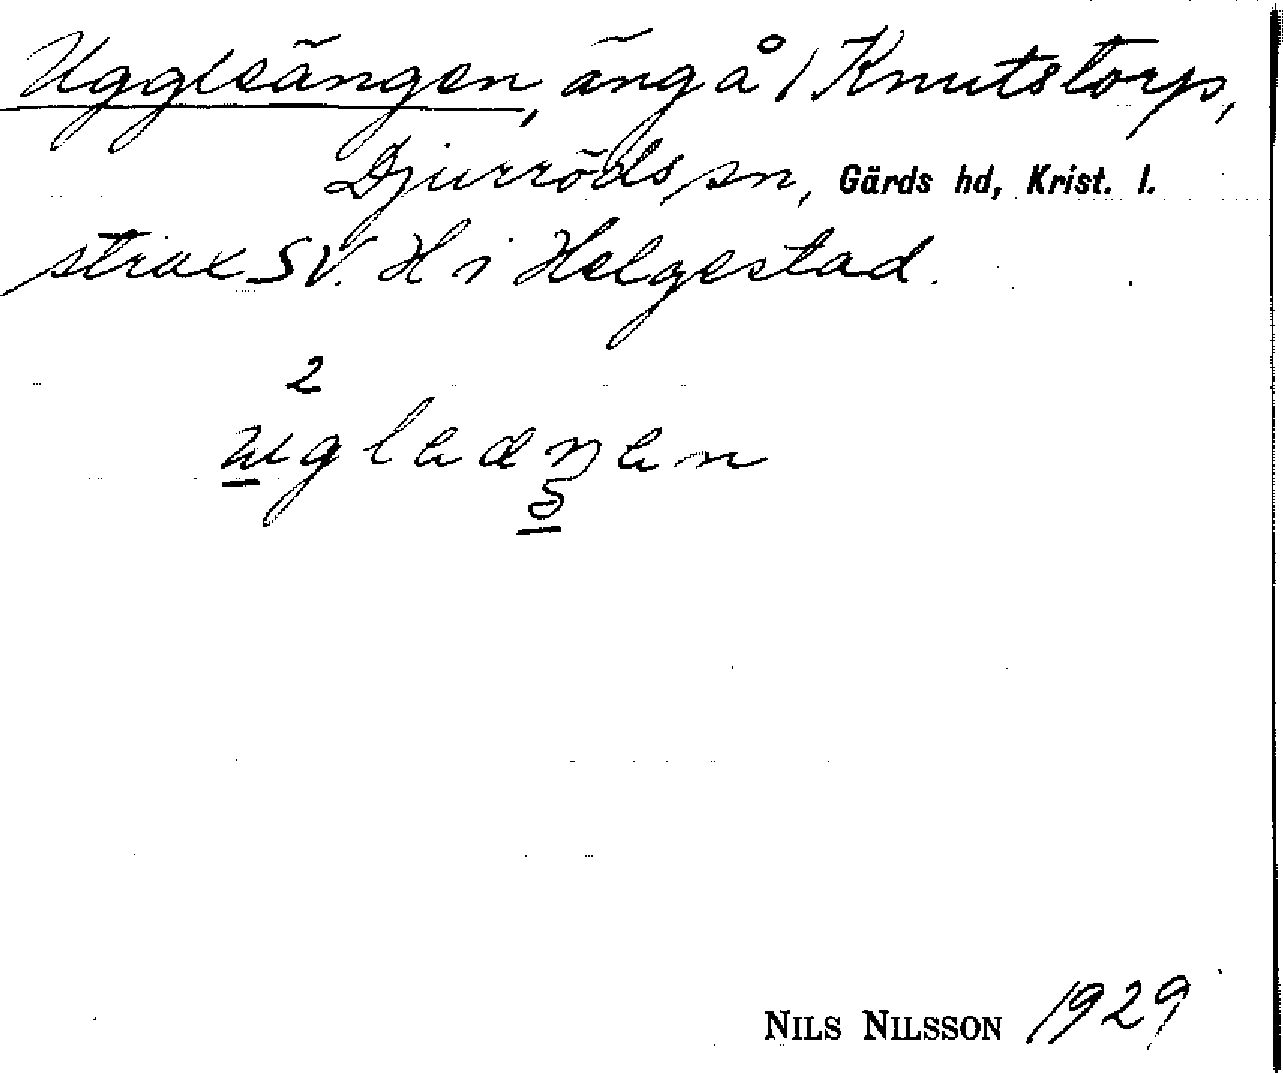 Uggleängen, äng å 1 Knutstorp,
Djurröds sn, Gärds hd, Krist. l.
strax SV. H i Helgestad.
2
uglaæŋan
5
NILS NILSSON 1929